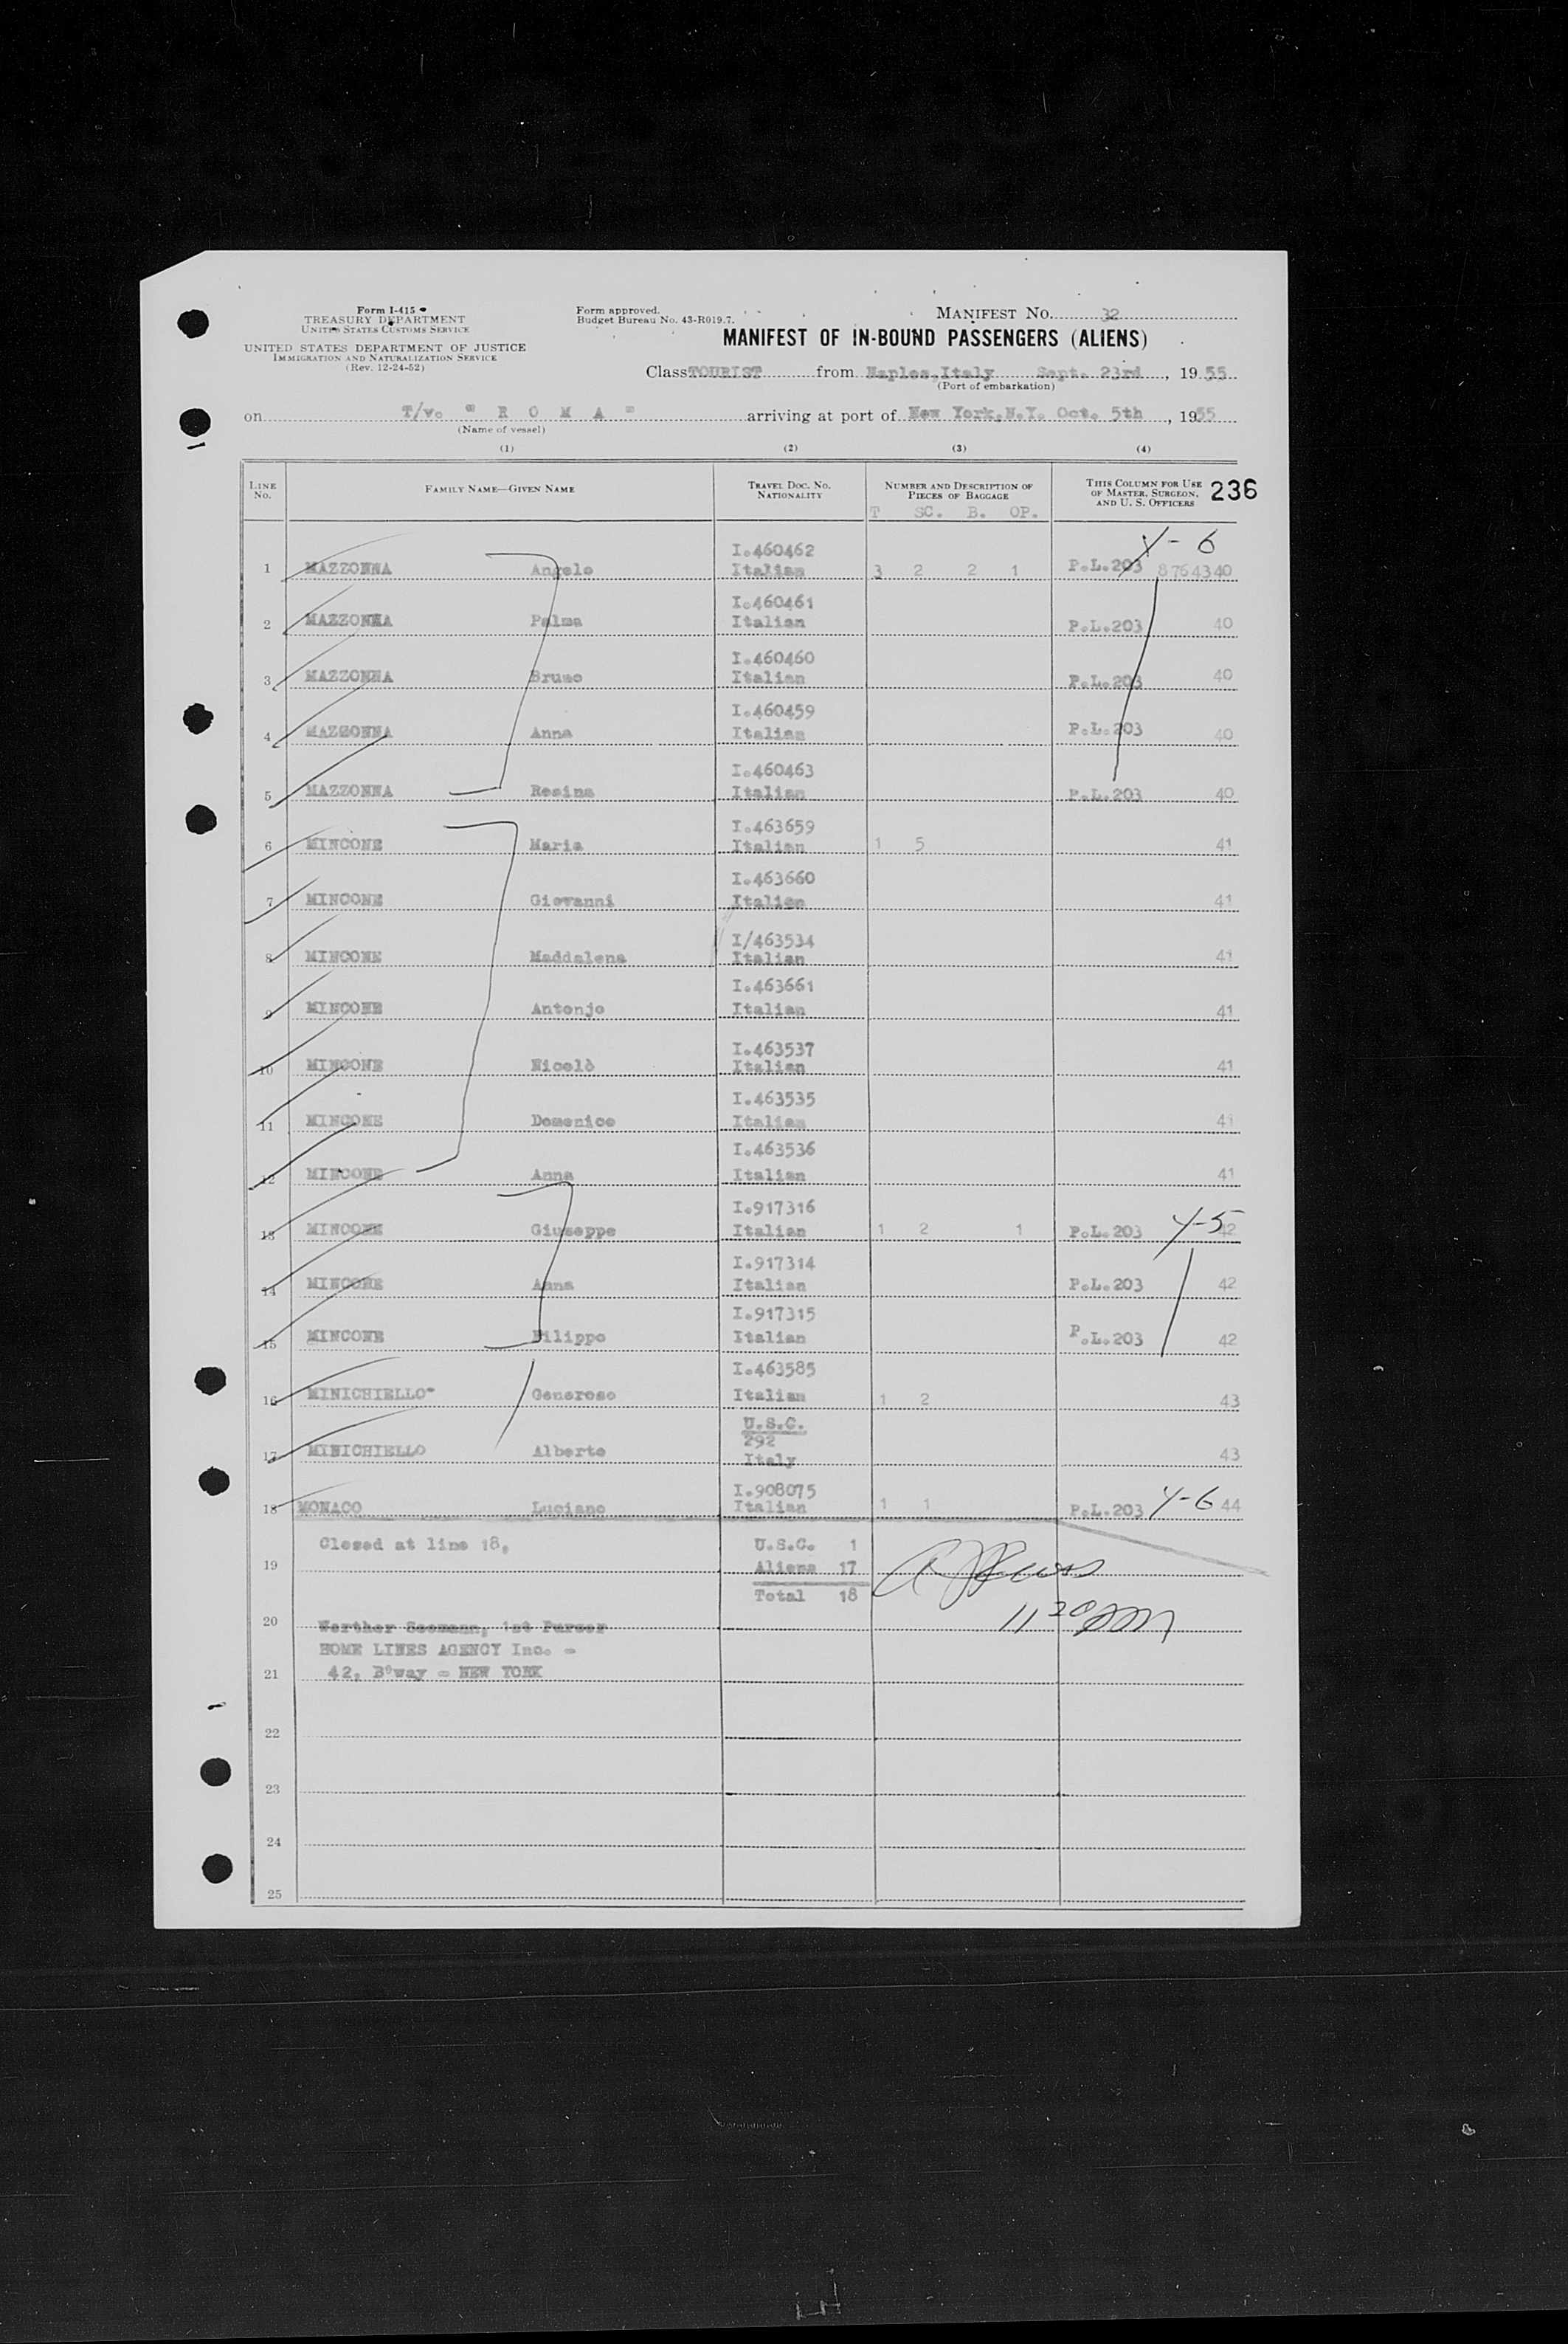 Form I-415
TREASURY DEPARTMENT
UNITED STATES CUSTOMS SERVICE
UNITED STATES DEPARTMENT OF JUSTICE
IMMIGRATION AND NATURALIZATION SERVICE
(Rev. 12-24-52)
Form approved.
Budget Bureau No. 43-R019.7.
MANIFEST NO. 32
MANIFEST OF IN-BOUND PASSENGERS (ALIENS)
Class TOURIST from Naples, Italy Sept. 23rd, 1955
(Port of embarkation)
on T/v. "R O M A" arriving at port of New York, N.Y. Oct. 5th, 1955
(Name of vessel)
(1) (2) (3) (4)
LINE NO. FAMILY NAME—GIVEN NAME TRAVEL DOC. NO. NATIONALITY NUMBER AND DESCRIPTION OF PIECES OF BAGGAGE THIS COLUMN FOR USE OF MASTER, SURGEON, AND U. S. OFFICERS 236
T SC. B. OP.
Y-6
I.460462
1 MAZZONNA Angelo Italian 3 2 2 1 P.L.203 8764340
I.460461
2 MAZZONNA Palma Italian P.L.203 40
I.460460
3 MAZZONNA Bruno Italian P.L.203 40
I.460459
4 MAZZONNA Anna Italian P.L.203 40
I.460463
5 MAZZONNA Rosina Italian P.L.203 40
I.463659
6 MINCONE Maria Italian 1 5 41
I.463660
7 MINCONE Giovanni Italian 41
I/463534
8 MINCONE Maddalena Italian 41
I.463661
9 MINCONE Antonjo Italian 41
I.463537
10 MINCONE Nicolò Italian 41
I.463535
11 MINCONE Domenico Italian 41
I.463536
12 MINCONE Anna Italian 41
I.917316
13 MINCONE Giuseppe Italian 1 2 1 P.L.203 Y-5 42
I.917314
14 MINCONE Anna Italian P.L.203 42
I.917315
15 MINCONE Filippo Italian P.L.203 42
I.463585
16 MINICHIELLO Generoso Italian 1 2 43
U.S.C.
292
17 MINICHIELLO Alberto Italy 43
I.908075
18 MONACO Luciano Italian 1 1 P.L.203 Y-6 44
Closed at line 18, U.S.C. 1
19 Aliens 17
Total 18
11 20 pm
20 Werther Seemann, 1st Purser
HOME LINES AGENCY Inc. -
21 42, B'way - NEW YORK
22
23
24
25